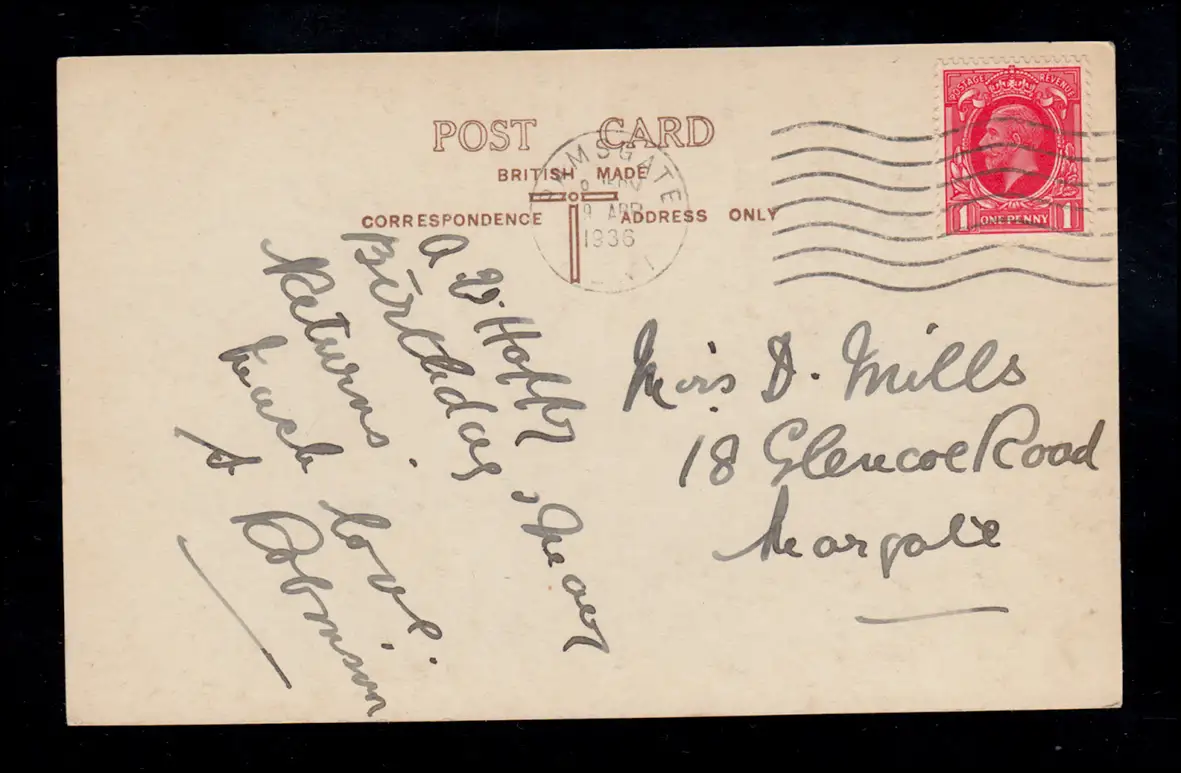 POSTAGE REVENUE
1 ONE PENNY 1
POST CARD
BRITISH MADE
CORRESPONDENCE
ADDRESS ONLY
RAMSGATE
9 APR
1936
A V. Happy
Birthday & Many
Returns.
Much love.
Robinson
Miss D. Mills
18 Glencoe Road
Margate